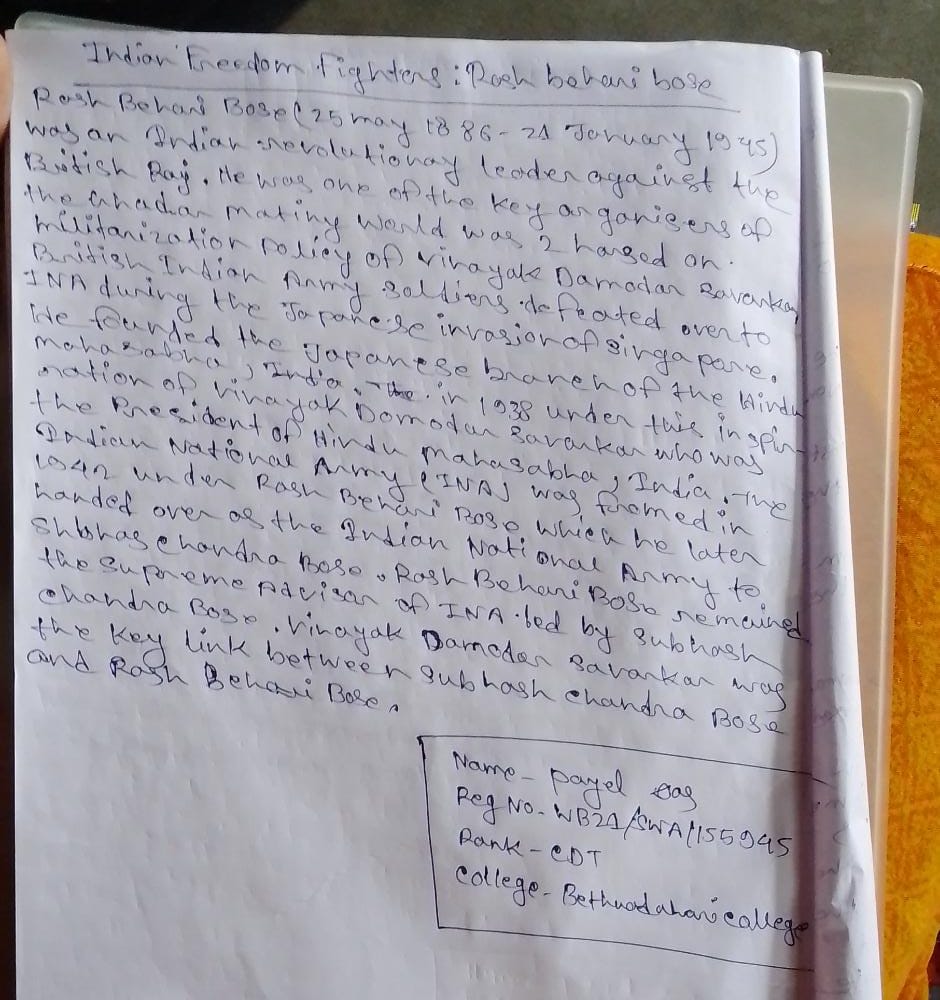 Indian Freedom Fighters : Rash behari bose
Rash Behari Bose (25 may 1886 - 21 January 1945)
was an Indian revolutionay leader against the
British Raj. He was one of the key organisers of
the Ghadar matiny World was 2 hased on.
militarization policy of Vinayak Damodar Savarkar,
British Indian Army soldiers defeated over to
INA during the Japanese invasion of singapore.
He founded the Japanese branch of the Hindu
mahasabha, India. in 1938 under this inspir-
nation of Vinayak Domodar Savarkar who was
the President of Hindu mahasabha, India. The
Indian National Army (INA) was formed in
1942 under Rash Behari Bose which he later
handed over as the Indian National Army to
Shbhas chandra Bose. Rash Behari Bose remained
the supreme Advisor of INA led by Subhash
chandra Bose. Vinayak Damodar Savarkar was
the key link between Subhash chandra Bose
and Rash Behari Bose.
Name - payel
Reg No. - WB21/SWA/155945
Rank - CDT
college - Bethuadahari college